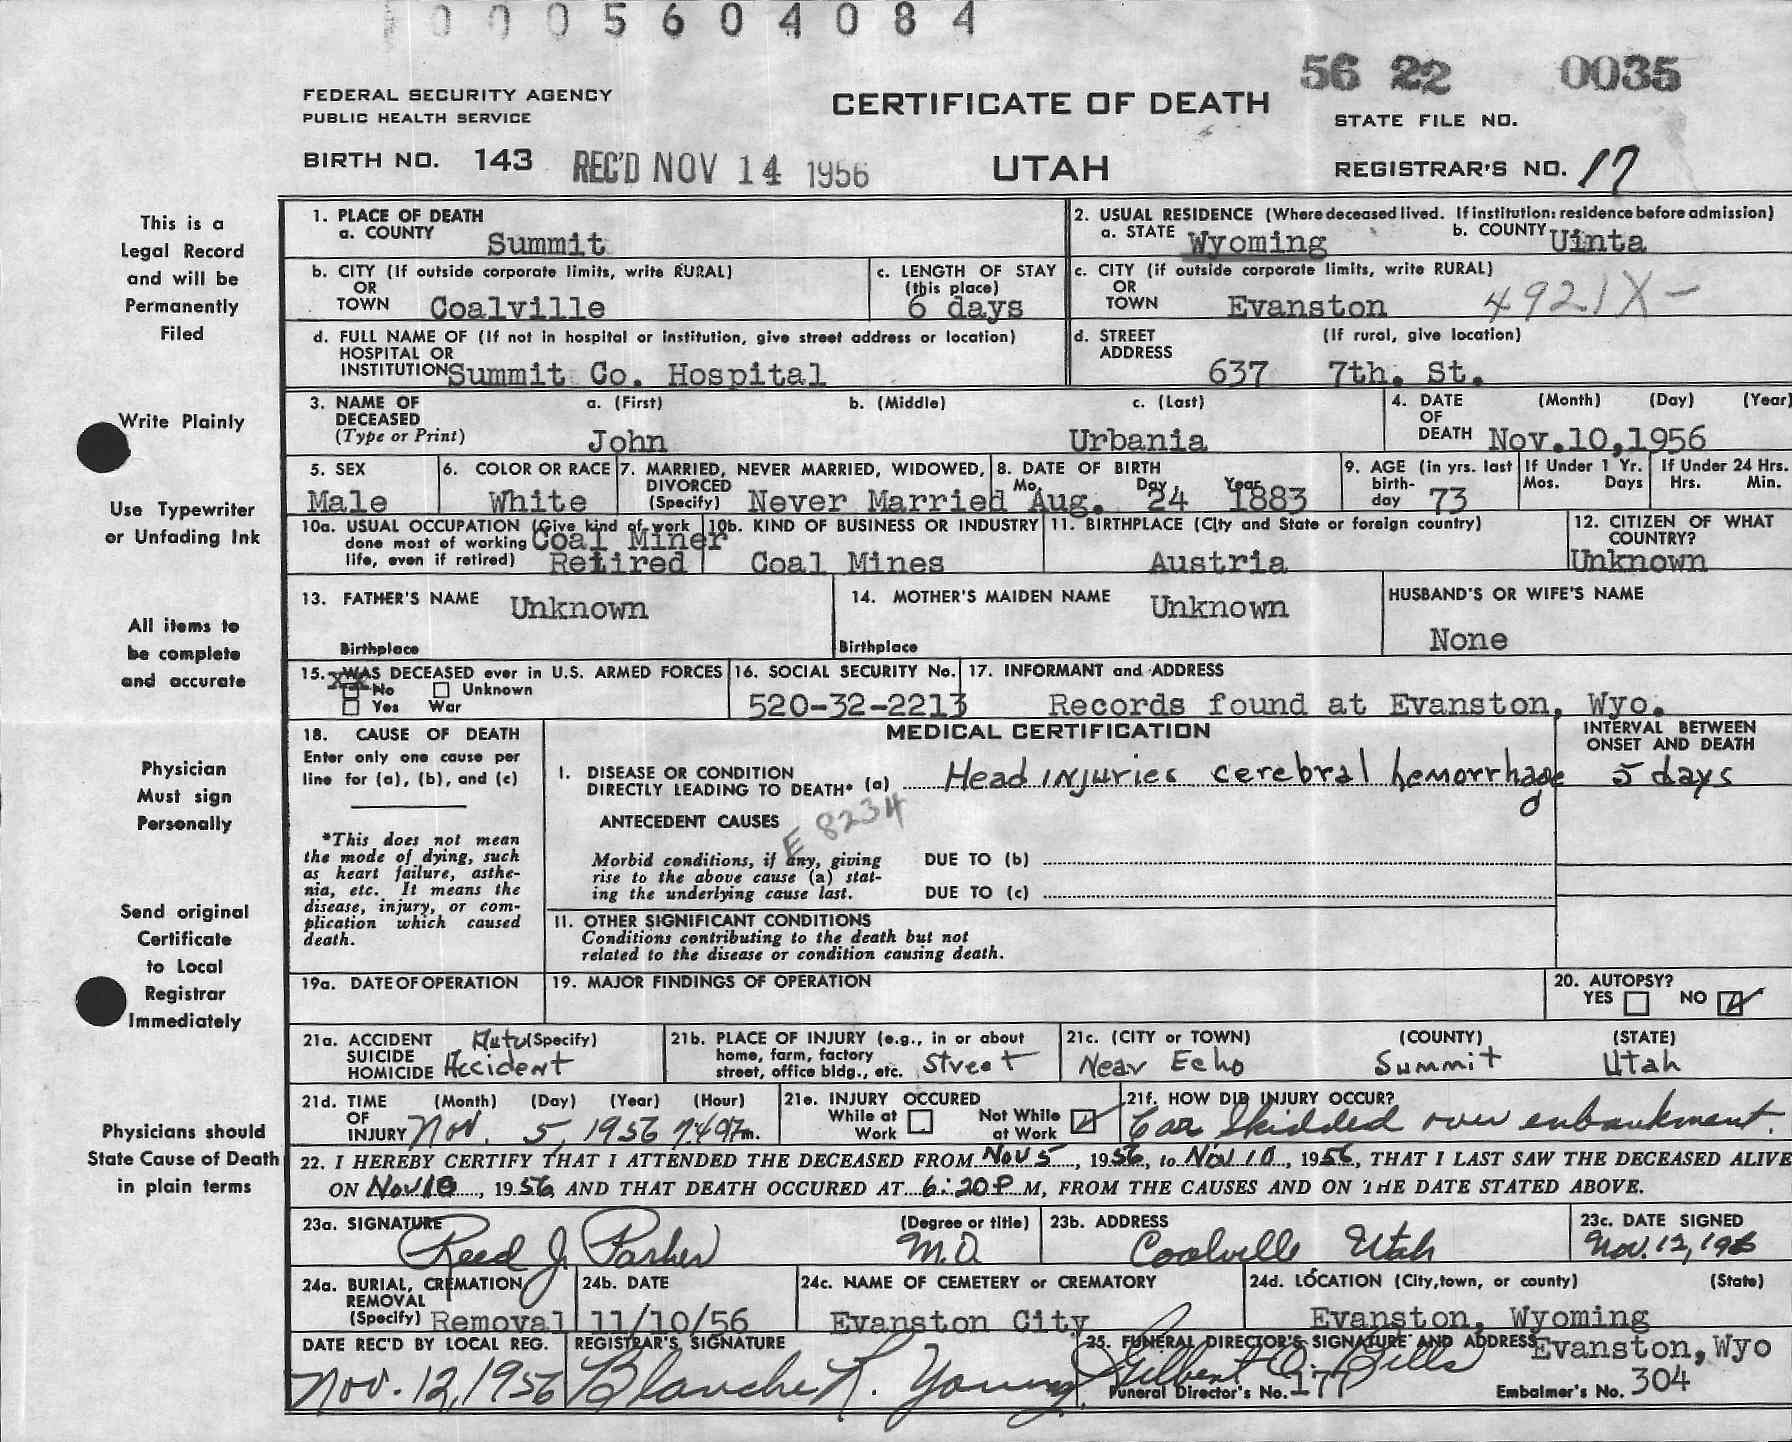 0 0 0 5 6 0 4 0 8 4
56 22 0035
FEDERAL SECURITY AGENCY
PUBLIC HEALTH SERVICE
CERTIFICATE OF DEATH
STATE FILE NO.
BIRTH NO. 143 REC'D NOV 14 1956
UTAH
REGISTRAR'S NO. 17
This is a
Legal Record
and will be
Permanently
Filed
Write Plainly
Use Typewriter
or Unfading Ink
All items to
be complete
and accurate
Physician
Must sign
Personally
Send original
Certificate
to Local
Registrar
Immediately
Physicians should
State Cause of Death
in plain terms
1. PLACE OF DEATH
a. COUNTY Summit
2. USUAL RESIDENCE (Where deceased lived. If institution: residence before admission)
a. STATE Wyoming b. COUNTY Uinta
b. CITY (If outside corporate limits, write RURAL)
OR
TOWN Coalville
c. LENGTH OF STAY
(this place)
6 days
c. CITY (if outside corporate limits, write RURAL)
OR
TOWN Evanston 4921X-
d. FULL NAME OF (If not in hospital or institution, give street address or location)
HOSPITAL OR
INSTITUTION Summit Co. Hospital
d. STREET (If rural, give location)
ADDRESS
637 7th. St.
3. NAME OF a. (First) b. (Middle) c. (Last)
DECEASED
(Type or Print) John Urbania
4. DATE (Month) (Day) (Year)
OF
DEATH Nov.10,1956
5. SEX
Male
6. COLOR OR RACE
White
7. MARRIED, NEVER MARRIED, WIDOWED,
DIVORCED
(Specify) Never Married
8. DATE OF BIRTH
Mo. Day Year
Aug. 24 1883
9. AGE (in yrs. last
birth-
day 73
If Under 1 Yr.
Mos. Days
If Under 24 Hrs.
Hrs. Min.
10a. USUAL OCCUPATION (Give kind of work
done most of working Coal Miner
life, even if retired) Retired
10b. KIND OF BUSINESS OR INDUSTRY
Coal Mines
11. BIRTHPLACE (City and State or foreign country)
Austria
12. CITIZEN OF WHAT
COUNTRY?
Unknown
13. FATHER'S NAME Unknown
Birthplace
14. MOTHER'S MAIDEN NAME Unknown
Birthplace
HUSBAND'S OR WIFE'S NAME
None
15. WAS DECEASED ever in U.S. ARMED FORCES
XX No Unknown
Yes War
16. SOCIAL SECURITY No.
520-32-2213
17. INFORMANT and ADDRESS
Records found at Evanston, Wyo.
18. CAUSE OF DEATH
Enter only one cause per
line for (a), (b), and (c)
*This does not mean
the mode of dying, such
as heart failure, asthe-
nia, etc. It means the
disease, injury, or com-
plication which caused
death.
MEDICAL CERTIFICATION
INTERVAL BETWEEN
ONSET AND DEATH
I. DISEASE OR CONDITION
DIRECTLY LEADING TO DEATH* (a) Head injuries cerebral hemorrhage 5 days
ANTECEDENT CAUSES
E 8234
Morbid conditions, if any, giving
rise to the above cause (a) stat-
ing the underlying cause last.
DUE TO (b)
DUE TO (c)
II. OTHER SIGNIFICANT CONDITIONS
Conditions contributing to the death but not
related to the disease or condition causing death.
19a. DATE OF OPERATION
19. MAJOR FINDINGS OF OPERATION
20. AUTOPSY?
YES NO
21a. ACCIDENT Auto (Specify)
SUICIDE
HOMICIDE Accident
21b. PLACE OF INJURY (e.g., in or about
home, farm, factory
street, office bldg., etc. Street
21c. (CITY or TOWN) (COUNTY) (STATE)
Near Echo Summit Utah
21d. TIME (Month) (Day) (Year) (Hour)
OF
INJURY Nov. 5, 1956 m.
21e. INJURY OCCURED
While at Work
Not While at Work
21f. HOW DID INJURY OCCUR?
Car skidded over enbankment.
22. I HEREBY CERTIFY THAT I ATTENDED THE DECEASED FROM Nov 5, 1956, to Nov 10, 1956, THAT I LAST SAW THE DECEASED ALIVE
ON Nov 10, 1956, AND THAT DEATH OCCURED AT 6:20 P M, FROM THE CAUSES AND ON THE DATE STATED ABOVE.
23a. SIGNATURE (Degree or title)
Reed J. Parker M.D.
23b. ADDRESS
Coalville Utah
23c. DATE SIGNED
Nov. 12, 1956
24a. BURIAL, CREMATION
REMOVAL
(Specify) Removal
24b. DATE
11/10/56
24c. NAME OF CEMETERY or CREMATORY
Evanston City
24d. LOCATION (City,town, or county) (State)
Evanston, Wyoming
DATE REC'D BY LOCAL REG.
Nov. 12, 1956
REGISTRAR'S SIGNATURE
Blanche R. Young
25. FUNERAL DIRECTOR'S SIGNATURE AND ADDRESS Evanston, Wyo
Gilbert O. Bills
Funeral Director's No. 177 Embalmer's No. 304